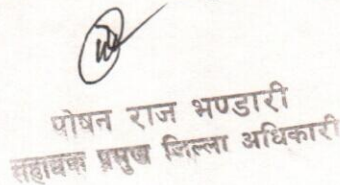 पोषन राज भण्डारी
सहायक प्रमुख जिल्ला अधिकारी